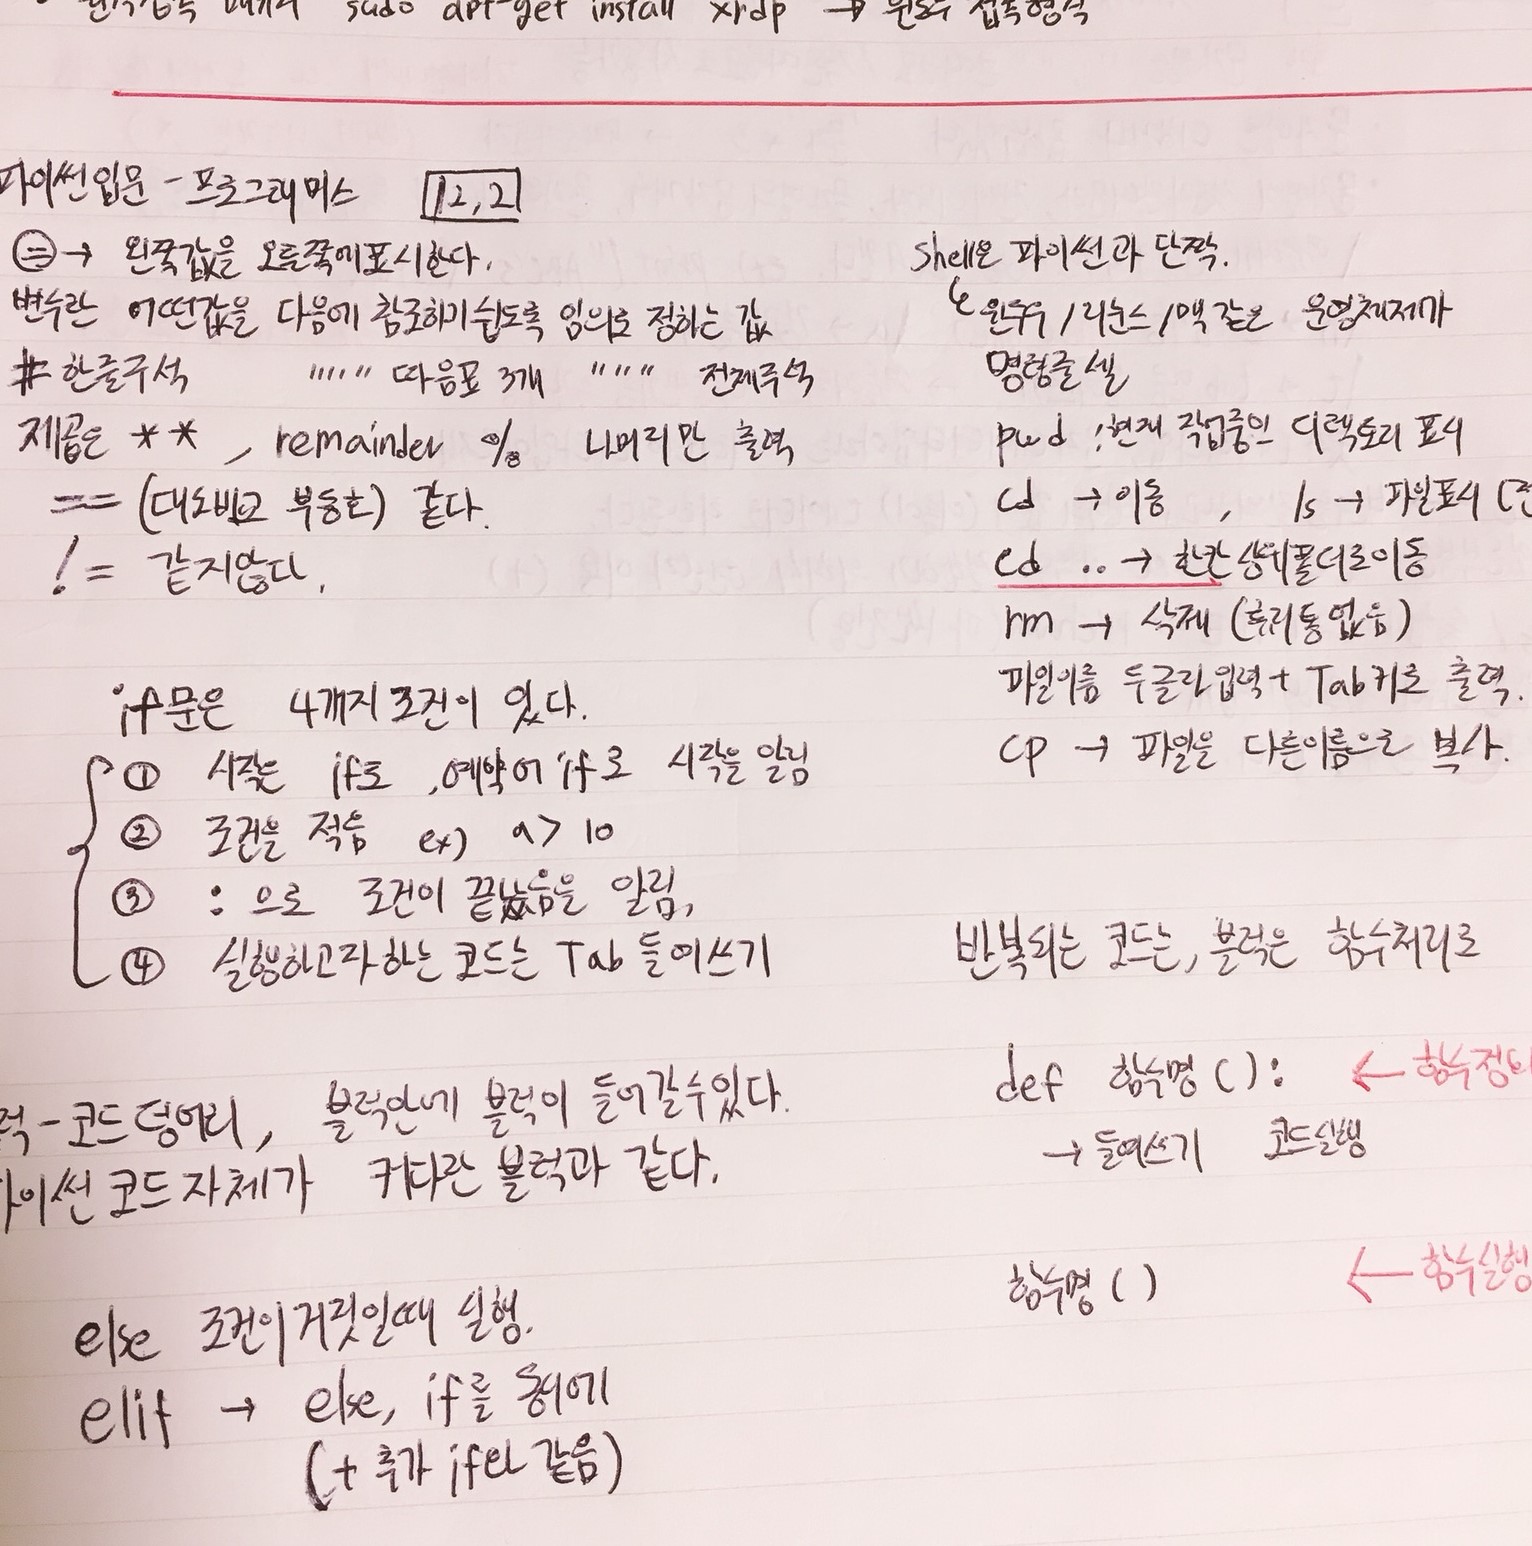 sudo apt-get install xrdp → 윈도우 접속형식
파이썬입문 - 프로그래머스 12,2
= → 왼쪽값을 오른쪽에표시한다.
변수란 어떤값을 다음에 참조하기쉽도록 임의로 정하는 값
# 한줄주석 """ 따옴표 3개 """ 전체주석
제곱은 ** , remainder % 나머지만 출력
== (대소비교 부등호) 같다.
!= 같지않다.
if문은 4개지조건이 있다.
① 시작은 if로, 예약어 if로 시작을 알림
② 조건을 적음 ex) a > 10
③ : 으로 조건이 끝났음을 알림,
④ 실행하고자하는 코드는 Tab 들여쓰기
럭-코드덩어리, 블럭안에 블럭이 들어갈수있다.
이썬코드자체가 커다란 블럭과 같다.
else 조건이거짓일때 실행.
elif → else, if를 동시에
(+ 추가 if와 같음)
shell은 파이썬과 단짝.
윈도우/리눅스/맥 같은 운영체제가
명령줄쉘
pwd : 현재 작업중인 디렉토리 표시
cd → 이동 , ls → 파일표시
cd .. → 한칸상위폴더로이동
rm → 삭제 (휴지통없음)
파일이름 두글자입력 + Tab키로 출력.
cp → 파일을 다른이름으로 복사.
반복되는 코드는, 블럭은 함수처리로
def 함수명 ( ) : ← 함수정의
→ 들여쓰기 코드실행
함수명 ( ) ← 함수실행